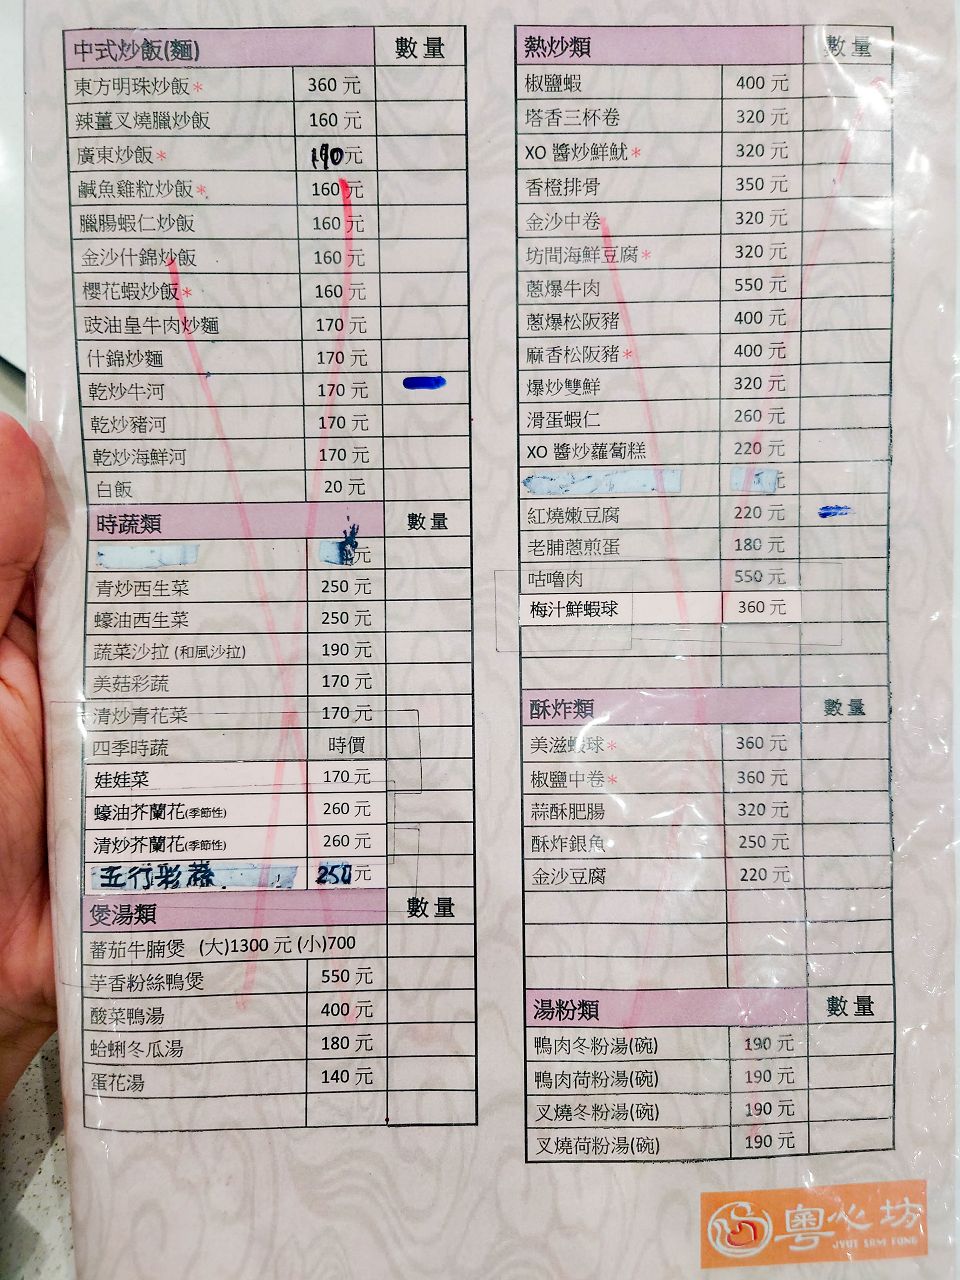 中式炒飯(麵) 數量
東方明珠炒飯* 360 元
辣薑叉燒臘炒飯 160 元
廣東炒飯* 190元
鹹魚雞粒炒飯* 160 元
臘腸蝦仁炒飯 160 元
金沙什錦炒飯 160 元
櫻花蝦炒飯* 160 元
豉油皇牛肉炒麵 170 元
什錦炒麵 170 元
乾炒牛河 170 元
乾炒豬河 170 元
乾炒海鮮河 170 元
白飯 20 元
時蔬類 數量
元
青炒西生菜 250 元
蠔油西生菜 250 元
蔬菜沙拉 (和風沙拉) 190 元
美菇彩蔬 170 元
清炒青花菜 170 元
四季時蔬 時價
娃娃菜 170 元
蠔油芥蘭花(季節性) 260 元
清炒芥蘭花(季節性) 260 元
五行彩蔬 250元
煲湯類 數量
蕃茄牛腩煲 (大)1300 元 (小)700
芋香粉絲鴨煲 550 元
酸菜鴨湯 400 元
蛤蜊冬瓜湯 180 元
蛋花湯 140 元
熱炒類 數量
椒鹽蝦 400 元
塔香三杯卷 320 元
XO 醬炒鮮魷* 320 元
香橙排骨 350 元
金沙中卷 320 元
坊間海鮮豆腐* 320 元
蔥爆牛肉 550 元
蔥爆松阪豬 400 元
麻香松阪豬* 400 元
爆炒雙鮮 320 元
滑蛋蝦仁 260 元
XO 醬炒蘿蔔糕 220 元
紅燒嫩豆腐 220 元
老脯蔥煎蛋 180 元
咕嚕肉 550 元
梅汁鮮蝦球 360 元
酥炸類 數量
美滋蝦球* 360 元
椒鹽中卷* 360 元
蒜酥肥腸 320 元
酥炸銀魚 250 元
金沙豆腐 220 元
湯粉類 數量
鴨肉冬粉湯(碗) 190 元
鴨肉荷粉湯(碗) 190 元
叉燒冬粉湯(碗) 190 元
叉燒荷粉湯(碗) 190 元
粵心坊
JYUT SAM FONG